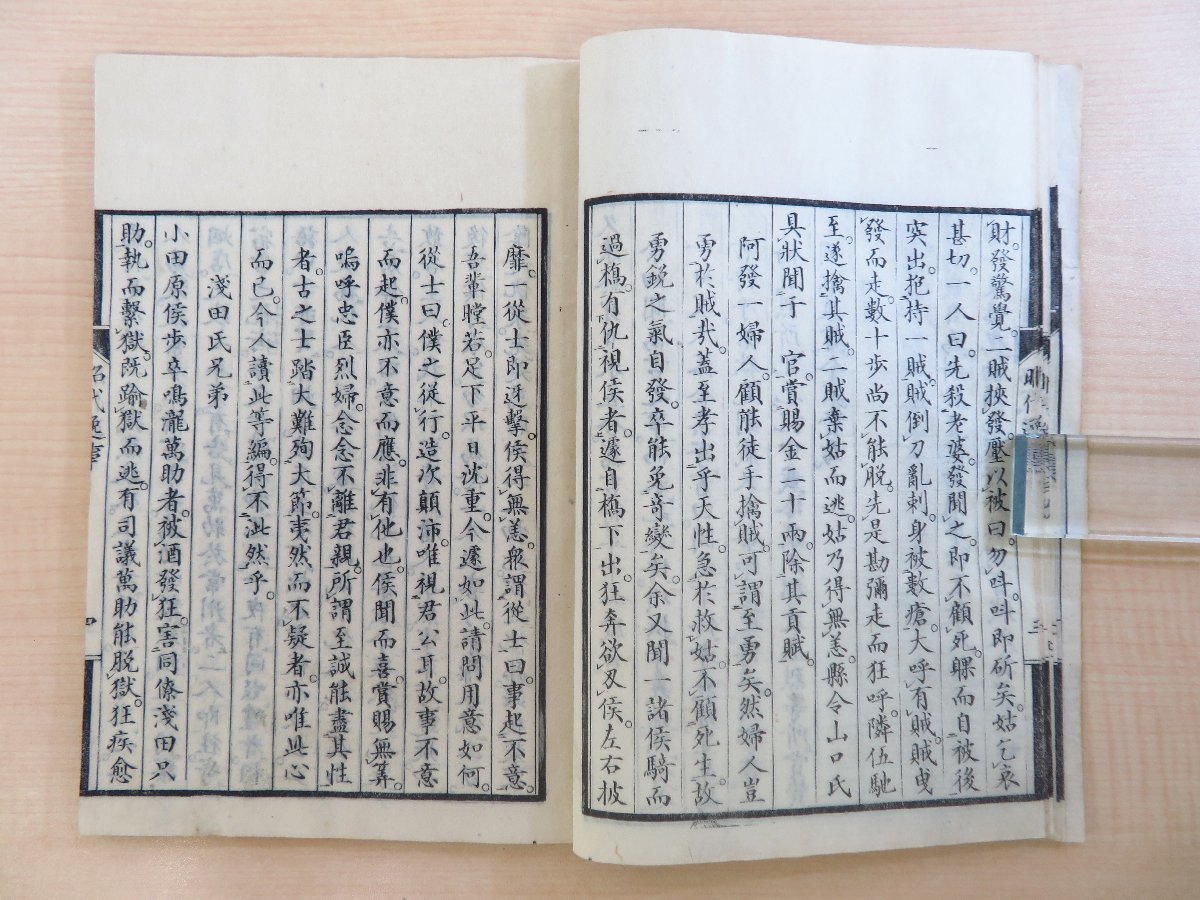 財。發驚覺。二賊挾發壓以被曰。勿呌。呌即斫矣。姑乞哀
甚切。一人曰。先殺老婆。發聞之。即不顧死。躶而自被後
突出。抱持一賊。賊倒刀亂刺。身被數瘡。大呼有賊。賊曳
發而走。數十步尚不能脫。先是勘彌走而狂呼。隣伍馳
至。遂擒其賊。二賊棄姑而逃。姑乃得無恙。縣令山口氏
具狀聞于 官。賞賜金二十兩。除其貢賦。
阿發一婦人。顧能徒手擒賊。可謂至勇矣。然婦人豈
勇於賊哉。蓋至孝出乎天性。急於救姑。不顧死生。故
勇銳之氣自發。卒能免奇變矣。余又聞一諸侯騎而
過橋。有仇視侯者。遽自橋下出。狂奔欲刄侯。左右披
靡。一從士即迓擊。侯得無恙。衆謂從士曰。事起不意。
吾輩瞠若。足下平日沈重。今遽如此。請問用意如何。
從士曰。僕之從行。造次顛沛。唯視君公耳。故事不意
而起。僕亦不意而應。非有他也。侯聞而喜。賞賜無筭。
嗚呼忠臣烈婦。念念不離君親。所謂至誠能盡其性
者。古之士踏大難殉大節。夷然而不疑者。亦唯此心
而已。今人讀此等編。得不泚然乎。
淺田氏兄弟
小田原侯步卒鳴瀧萬助者。被酒發狂。害同僚淺田只
助。執而繫獄。既踰獄而逃。有司議萬助能脫獄。狂疾愈
昭代逸事
四
三